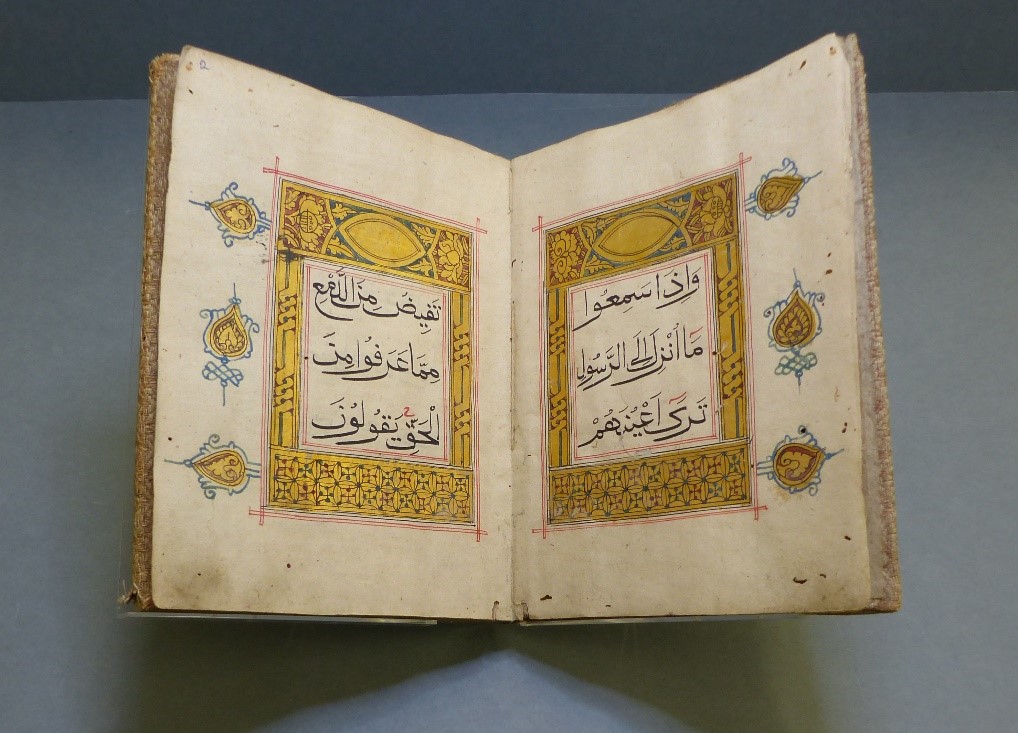 وَاِذَا سَمِعُوا
مَآ اُنْزِلَ اِلَى الرَّسُوْلِ
تَرٰٓى اَعْيُنَهُمْ
تَفِيْضُ مِنَ الدَّمْعِ
مِمَّا عَرَفُوْا مِنَ
الْحَقِّ يَقُوْلُوْنَ
2